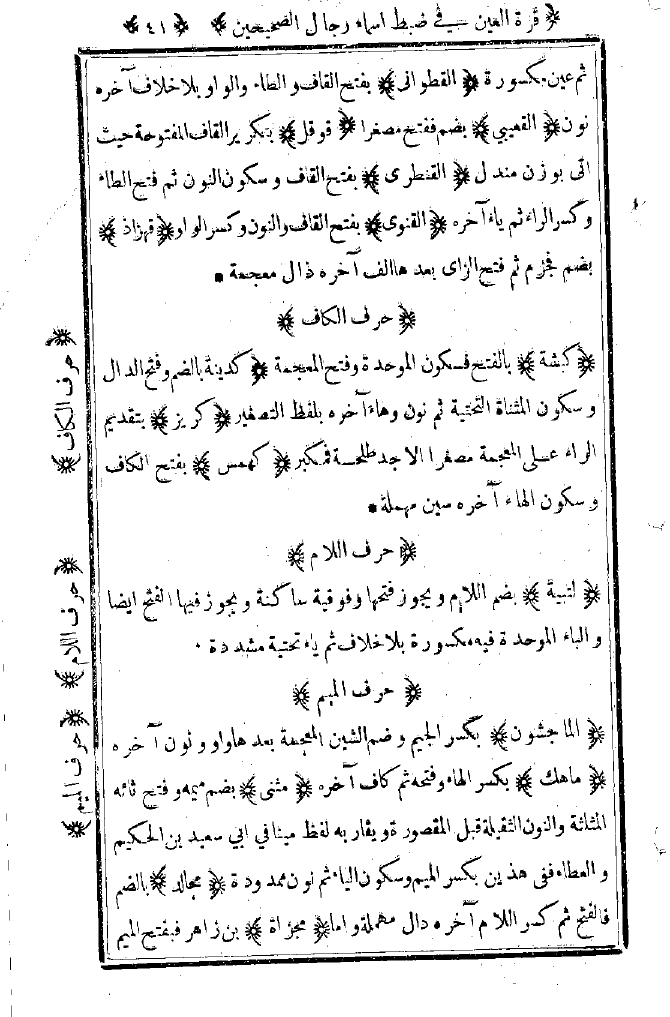 ﴿ قرة العين في ضبط اسماء رجال الصحيحين ﴾ ﴿ ٤١ ﴾
ثم عين مكسورة ﴿ القطوانى ﴾ بفتح القاف والطاء والواو بلاخلاف آخره
نون ﴿ القعيبي ﴾ بضم ففتح مصغرا ﴿ قوقل ﴾ بتكرير القاف المفتوحة حيث
اتى بوزن مندل ﴿ القنطرى ﴾ بفتح القاف وسكون النون ثم فتح الطاء
وكسر الراء ثم ياء آخره ﴿ القنوى ﴾ بفتح القاف والنون وكسر الواو ﴿ قهزاذ ﴾
بضم فجزم ثم فتح الزاى بعدها الف آخره ذال معجمة ٠
﴿ حرف الكاف ﴾
﴿ كبشة ﴾ بالفتح فسكون الموحدة وفتح المعجمة ﴿ كدينة بالضم وفتح الدال
وسكون المثناة التحتية ثم نون وهاء آخره بلفظ التصغير ﴿ كريز ﴾ بتقديم
الراء على المعجمة مصغرا الا جد طلحة فمكبر ﴿ كهمس ﴾ بفتح الكاف
وسكون الهاء آخره سين مهملة ٠
﴿ حرف اللام ﴾
﴿ لتبية ﴾ بضم اللام ويجوز فتحها وفوقية ساكنة ويجوز فيها الفتح ايضا
والباء الموحدة فيه مكسورة بلاخلاف ثم ياء تحتية مشددة ٠
﴿ حرف الميم ﴾
﴿ الماجشون ﴾ بكسر الجيم وضم الشين المعجمة بعدها واو ونون آخره
﴿ ماهك ﴾ بكسر الهاء وفتحه ثم كاف آخره ﴿ مثنى ﴾ بضم ميمه وفتح ثائه
المثلثة والنون الثقيلة قبل المقصورة ويقاربه لفظ مينا في ابي سعيد بن الحكيم
والعطاء ففى هذين بكسر الميم وسكون الياء ثم نون ممدودة ﴿ مجالد ﴾ بالضم
فالفتح ثم كسر اللام آخره دال مهملة واما ﴿ مجزاة ﴾ بن زاهر فبفتح الميم
﴿ حرف الكاف ﴾
﴿ حرف اللام ﴾
﴿ حرف الميم ﴾